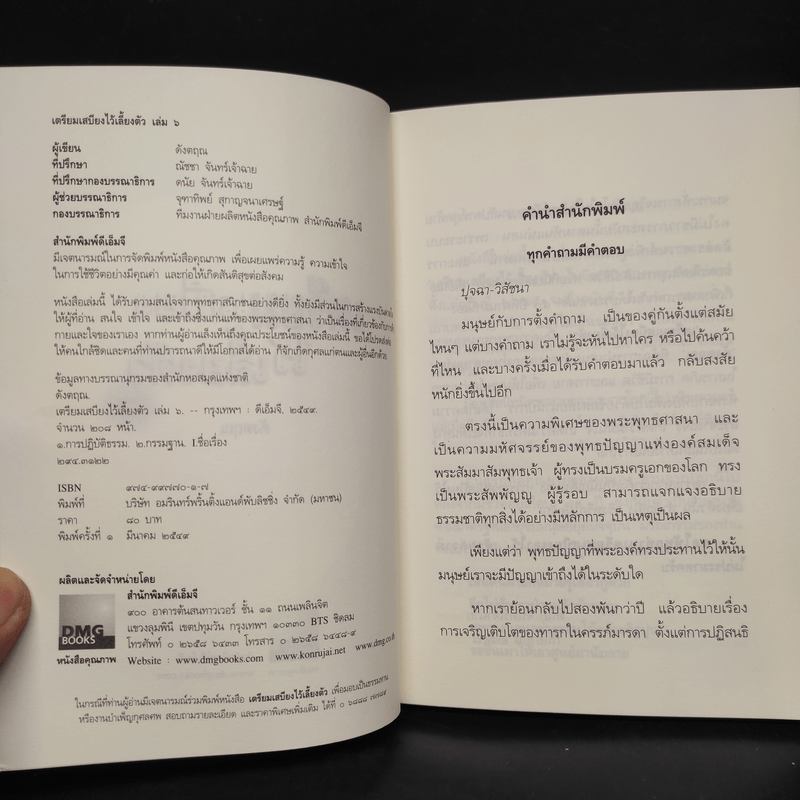 เตรียมเสบียงไว้เลี้ยงตัว เล่ม ๖
ผู้เขียน ดังตฤณ
ที่ปรึกษา ณัชชา จันทร์เจ้าฉาย
ที่ปรึกษากองบรรณาธิการ ดนัย จันทร์เจ้าฉาย
ผู้ช่วยบรรณาธิการ จุฑาทิพย์ สุกาญจนาเศรษฐ์
กองบรรณาธิการ ทีมงานฝ่ายผลิตหนังสือคุณภาพ สำนักพิมพ์ดีเอ็มจี
สำนักพิมพ์ดีเอ็มจี
มีเจตนารมณ์ในการจัดพิมพ์หนังสือคุณภาพ เพื่อเผยแพร่ความรู้ ความเข้าใจ
ในการใช้ชีวิตอย่างมีคุณค่า และก่อให้เกิดสันติสุขต่อสังคม
หนังสือเล่มนี้ ได้รับความสนใจจากพุทธศาสนิกชนอย่างดียิ่ง ทั้งยังมีส่วนในการสร้างแรงบันดาลใจ
ให้ผู้ที่อ่าน สนใจ เข้าใจ และเข้าถึงซึ่งแก่นแท้ของพระพุทธศาสนา ว่าเป็นเรื่องที่เกี่ยวข้องกับการ
กายและใจของเราเอง หากท่านผู้อ่านเล็งเห็นถึงคุณประโยชน์ของหนังสือเล่มนี้ ขอได้โปรดส่งต่อ
ให้คนใกล้ชิดและคนที่ท่านปรารถนาดีให้มีโอกาสได้อ่าน ก็จักเกิดกุศลแก่ตนและผู้อื่นอีกด้วย
ข้อมูลทางบรรณานุกรมของสำนักหอสมุดแห่งชาติ
ดังตฤณ.
เตรียมเสบียงไว้เลี้ยงตัว เล่ม ๖. -- กรุงเทพฯ : ดีเอ็มจี, ๒๕๔๙.
จำนวน ๒๐๘ หน้า.
๑.การปฏิบัติธรรม. ๒.กรรมฐาน. I.ชื่อเรื่อง
๒๙๔.๓๑๒๒
ISBN ๙๗๔-๙๙๗๗๐-๑-๗
พิมพ์ที่ บริษัท อมรินทร์พริ้นติ้งแอนด์พับลิชชิ่ง จำกัด (มหาชน)
ราคา ๘๐ บาท
พิมพ์ครั้งที่ ๑ มีนาคม ๒๕๔๙
ผลิตและจัดจำหน่ายโดย
สำนักพิมพ์ดีเอ็มจี
๙๐๐ อาคารต้นสนทาวเวอร์ ชั้น ๑๑ ถนนเพลินจิต
แขวงลุมพินี เขตปทุมวัน กรุงเทพฯ ๑๐๓๓๐ BTS ชิดลม
โทรศัพท์ ๐ ๒๖๕๘ ๖๔๓๓ โทรสาร ๐ ๒๖๕๘ ๖๔๔๘-๙
DMG
BOOKS
หนังสือคุณภาพ Website : www.dmgbooks.com www.konrujai.net www.dmg.co.th
ในกรณีที่ท่านผู้อ่านมีเจตนารมณ์ร่วมพิมพ์หนังสือ เตรียมเสบียงไว้เลี้ยงตัว เพื่อมอบเป็นธรรมทาน
หรืองานบำเพ็ญกุศลศพ สอบถามรายละเอียด และราคาพิเศษเพิ่มเติม ได้ที่
คำนำสำนักพิมพ์
ทุกคำถามมีคำตอบ
ปุจฉา-วิสัชนา
มนุษย์กับการตั้งคำถาม เป็นของคู่กันตั้งแต่สมัย
ไหนๆ แต่บางคำถาม เราไม่รู้จะหันไปหาใคร หรือไปค้นคว้า
ที่ไหน และบางครั้งเมื่อได้รับคำตอบมาแล้ว กลับสงสัย
หนักยิ่งขึ้นไปอีก
ตรงนี้เป็นความพิเศษของพระพุทธศาสนา และ
เป็นความมหัศจรรย์ของพุทธปัญญาแห่งองค์สมเด็จ
พระสัมมาสัมพุทธเจ้า ผู้ทรงเป็นบรมครูเอกของโลก ทรง
เป็นพระสัพพัญญู ผู้รู้รอบ สามารถแจกแจงอธิบาย
ธรรมชาติทุกสิ่งได้อย่างมีหลักการ เป็นเหตุเป็นผล
เพียงแต่ว่า พุทธปัญญาที่พระองค์ทรงประทานไว้ให้นั้น
มนุษย์เราจะมีปัญญาเข้าถึงได้ในระดับใด
หากเราย้อนกลับไปสองพันกว่าปี แล้วอธิบายเรื่อง
การเจริญเติบโตของทารกในครรภ์มารดา ตั้งแต่การปฏิสนธิ